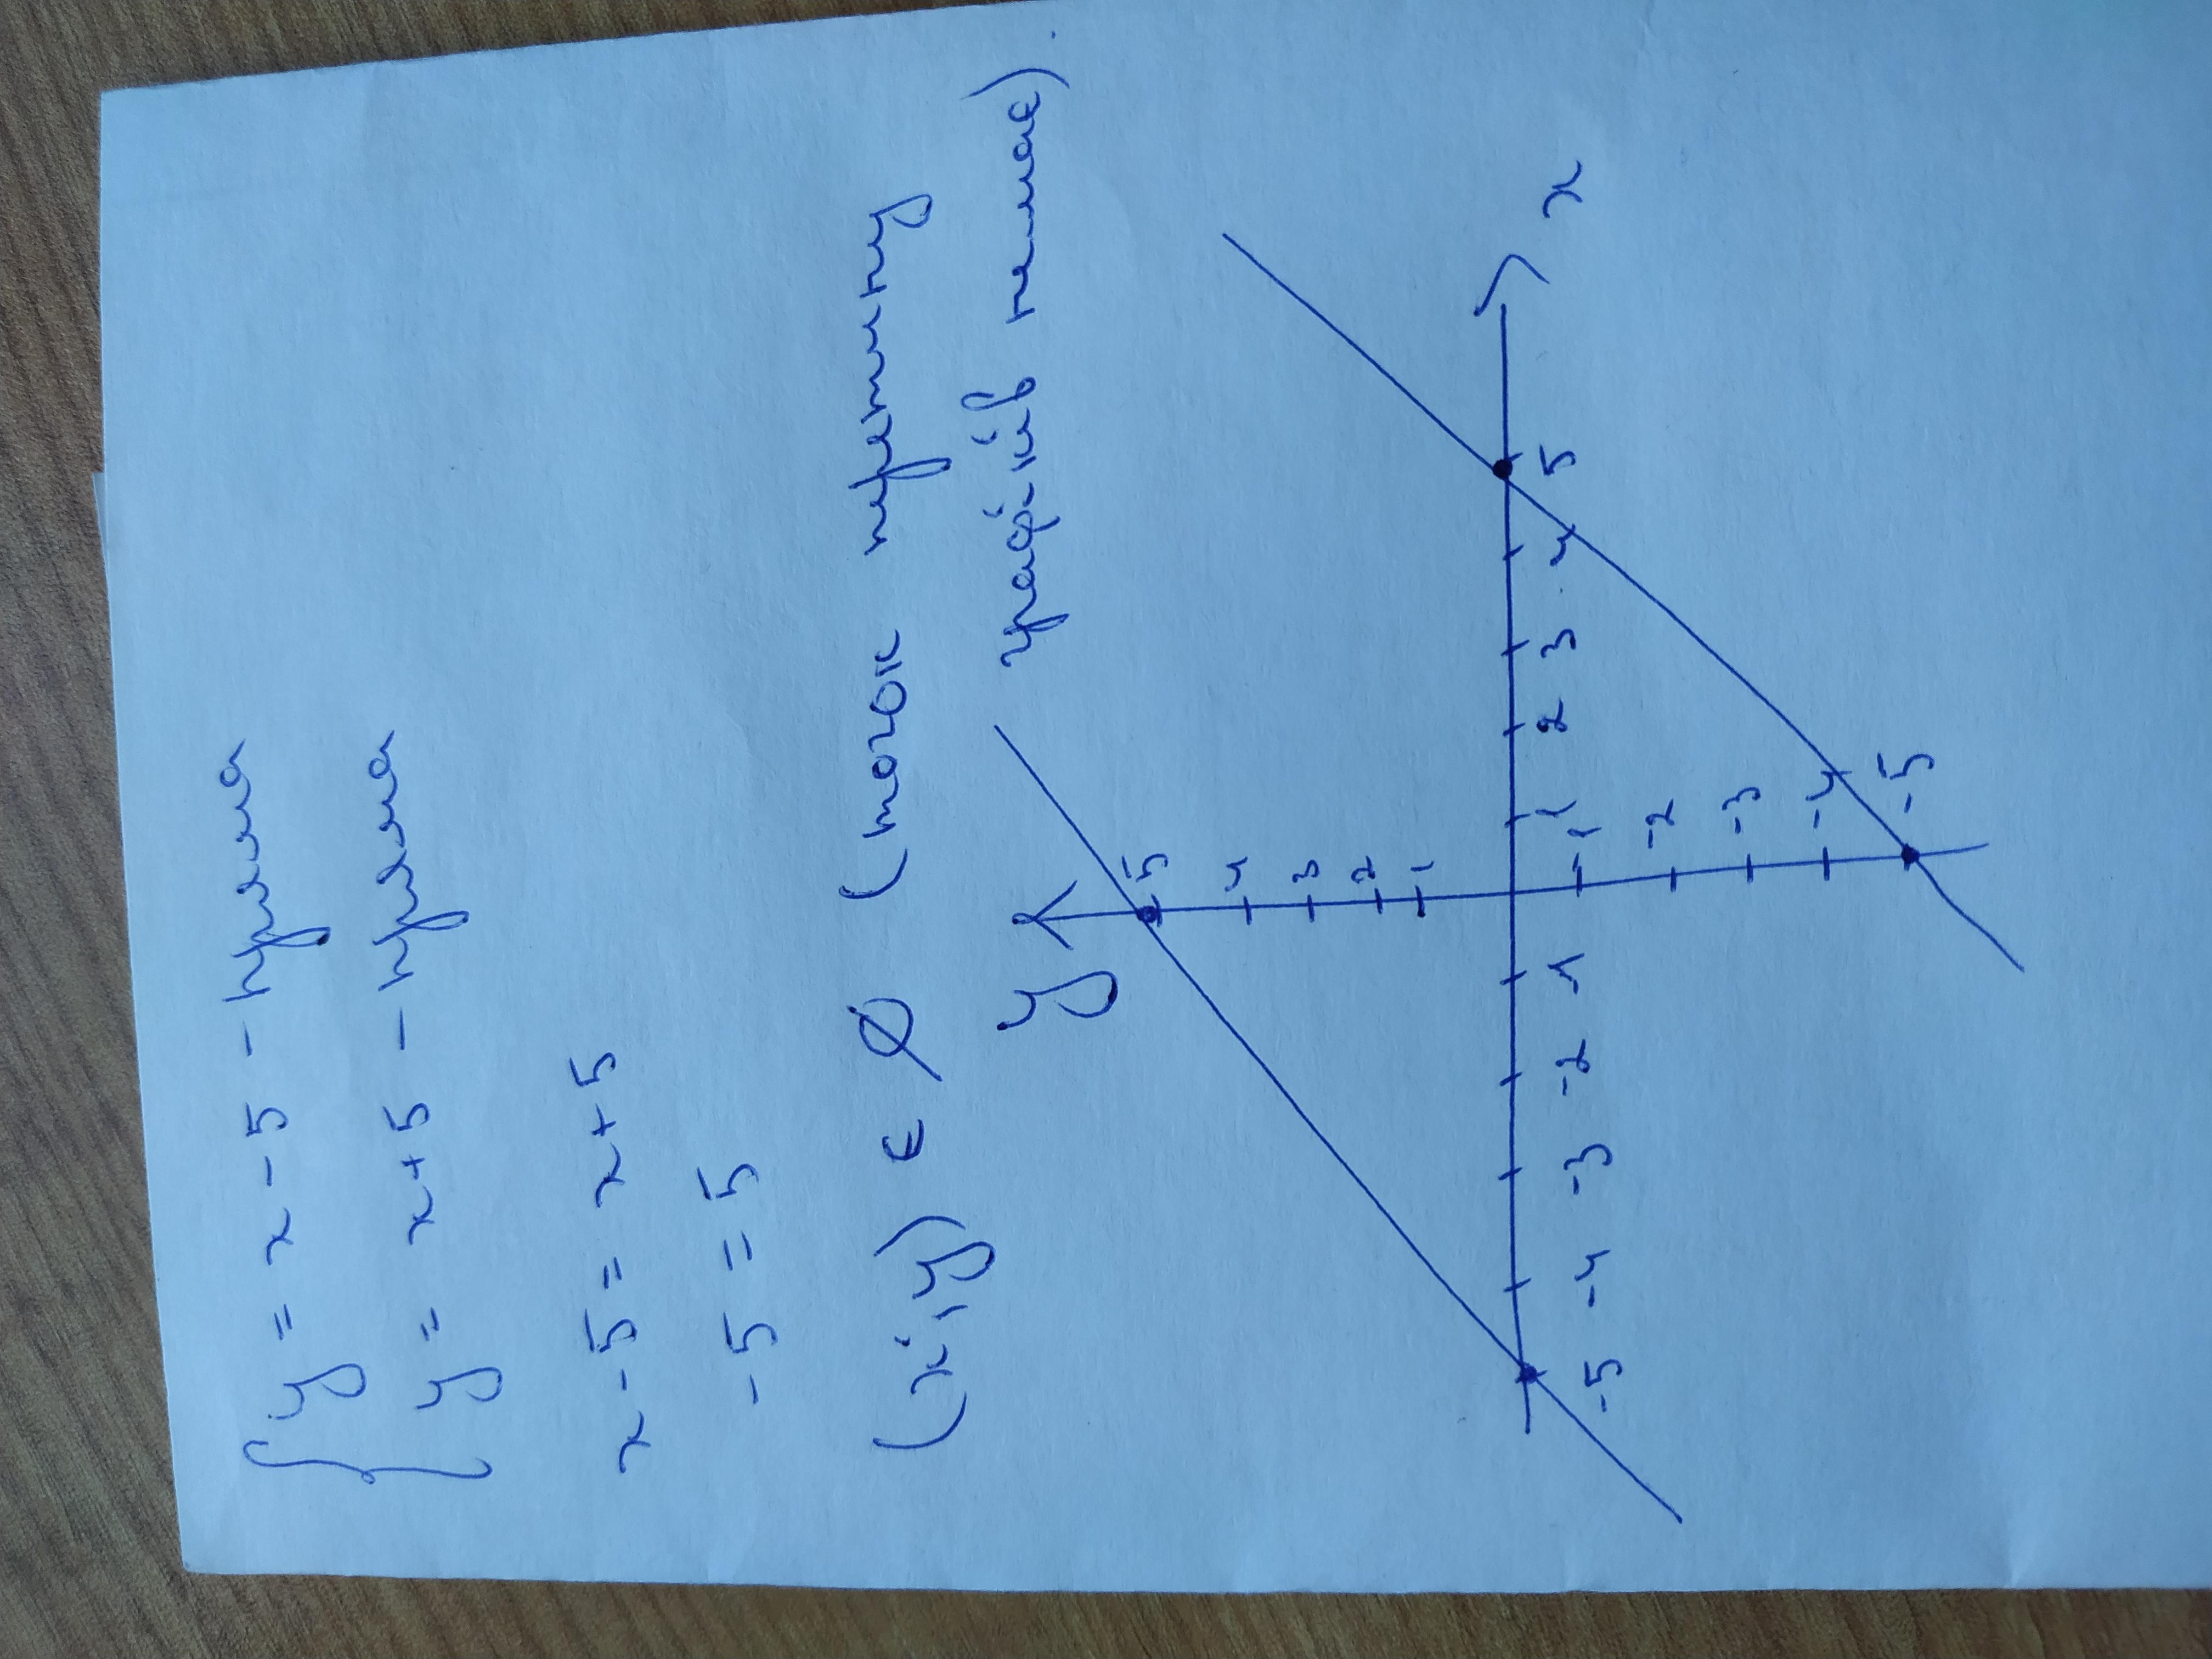 { y = x - 5 - пряма
y = x + 5 - пряма
x - 5 = x + 5
-5 = 5
(x; y) ∈ ∅ (точок перетину
графіків немає).
y
5
4
3
2
1
-5 -4 -3 -2 -1 1 2 3 4 5 x
-1
-2
-3
-4
-5